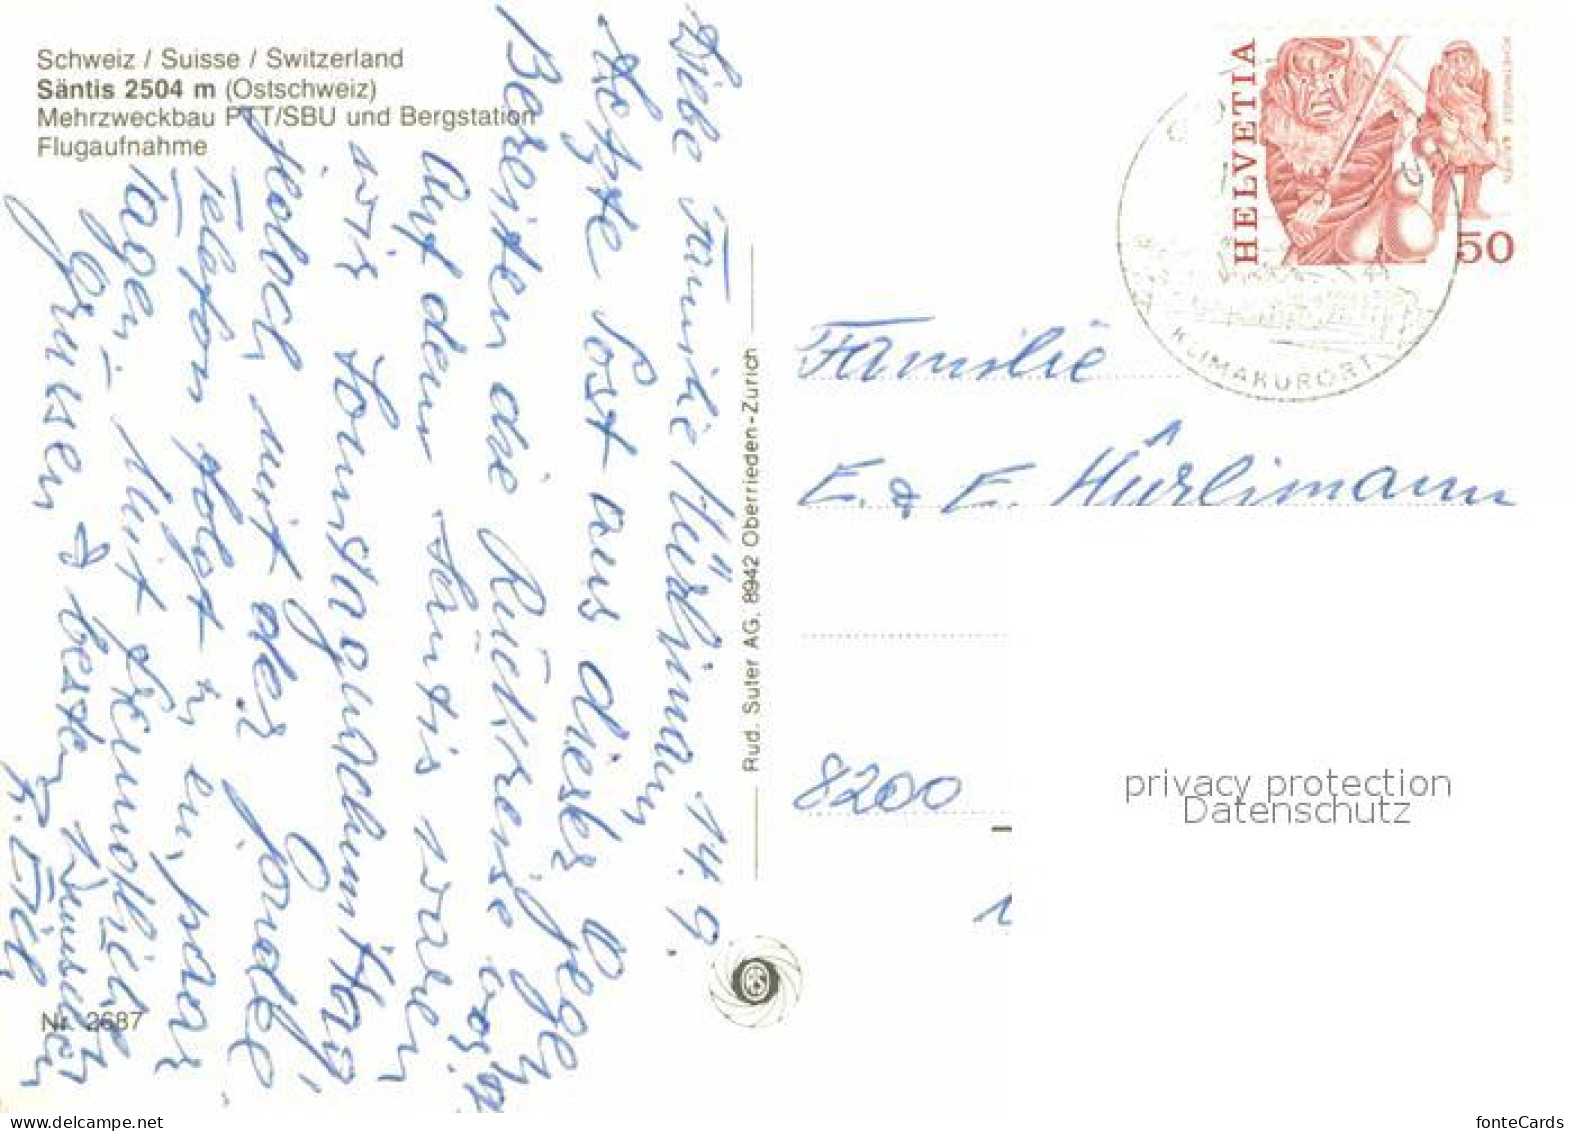 Schweiz / Suisse / Switzerland
Säntis 2504 m (Ostschweiz)
Mehrzweckbau PTT/SBU und Bergstation
Flugaufnahme
Liebe Familie Hürlimann 14.9.
Letzte Post aus dieser Gegend
Bereiten die Rückreise vor.
Auf dem Säntis waren
wir Sonntagnachmittag,
jedoch mit der Gondel
Telefon folgt in ein paar
Tagen. Mit freundlichen
Grüssen & besten Wünschen
Nr. 2687
Rud. Suter AG, 8942 Oberrieden-Zürich
HELVETIA
50
KLIMAKURORT
Familie
E. & E. Hürlimann
8200
privacy protection
Datenschutz
fonteCards